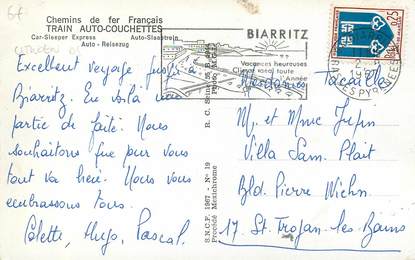 Chemins de fer Français
TRAIN AUTO-COUCHETTES
Car-Sleeper Express Auto-Slaaptrein
Auto-Reisezug
Excellent voyage jusqu'à
Biarritz. En voilà une
partie de faite. Nous
souhaitons que pour vous
tout va bien. Nous vous
embrassons tous.
Colette, Hugo, Pascal.
S.N.C.F. 1967 - N° 19
Procédé Mexichrome
BIARRITZ
Vacances heureuses
Climat vocal toute
l'Année
0,25
Mesdames
M. et Mme
Villa Sam Plait
Bld. Pierre
17 St. Trojan-les-Bains